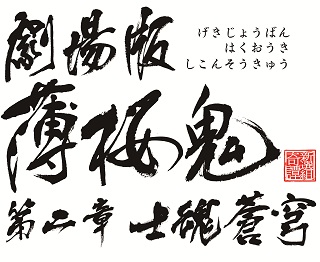 劇場版
げきじょうばん
はくおうき
しこんそうきゅう
薄桜鬼
新選組奇譚
第二章 士魂蒼穹